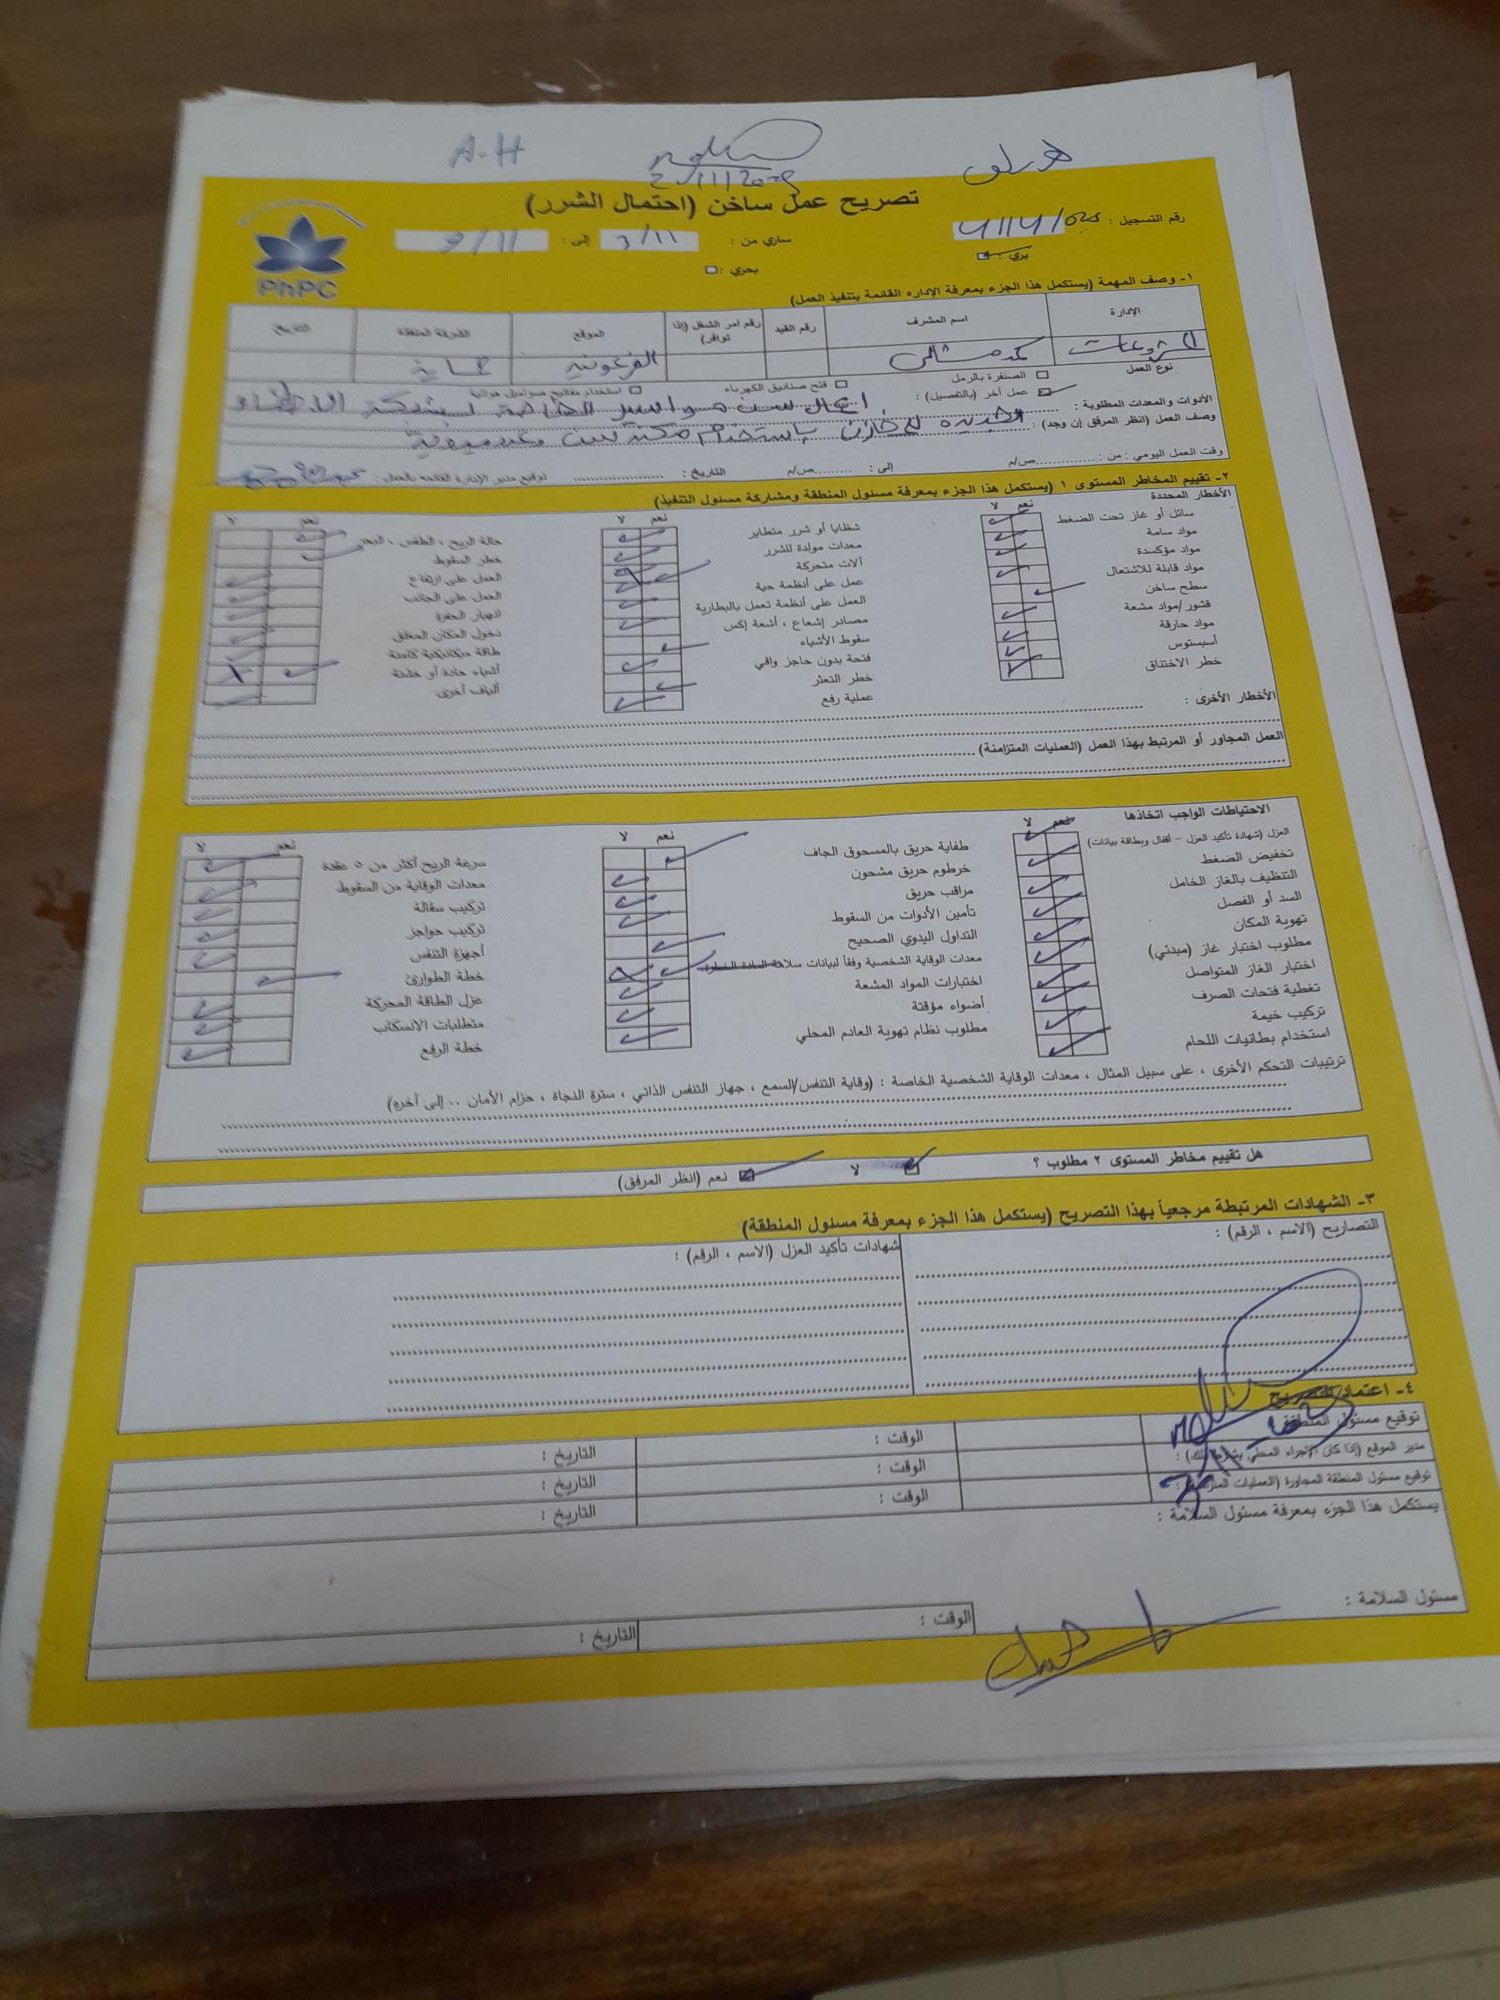 A-H
تصريح عمل ساخن (احتمال الشرر)
رقم التسجيل :
ساري من : ٣/١١ إلى : ٩/١١
بري : بحري :
PhPC
١- وصف المهمة (يستكمل هذا الجزء بمعرفة الإداره القائمة بتنفيذ العمل)
الإدارة اسم المشرف رقم القيد رقم امر الشغل (إذا توافر) الموقع الشركة المنفذة التاريخ
المشروعات الفرعونية
نوع العمل الصنفرة بالرمل فتح صناديق الكهرباء استخدام مفاتيح صواميل هوائية
عمل آخر (بالتفصيل) :
الأدوات والمعدات المطلوبة : أعمال سن مواسير الخاصة لشبكة الاطفاء
وصف العمل (انظر المرفق إن وجد) : الجديدة للمخازن باستخدام مكنة سن وعدد يدوية
وقت العمل اليومي : من : ص/م إلى : ص/م التاريخ : توقيع مدير الإدارة القائمة بالعمل :
٢- تقييم المخاطر المستوى ١ (يستكمل هذا الجزء بمعرفة مسئول المنطقة ومشاركة مسئول التنفيذ)
الأخطار المحددة
نعم لا
سائل أو غاز تحت الضغط
مواد سامة
مواد مؤكسدة
مواد قابلة للاشتعال
سطح ساخن
قشور /مواد مشعة
مواد حارقة
أسبستوس
خطر الاختناق
نعم لا
شظايا أو شرر متطاير
معدات مولدة للشرر
آلات متحركة
عمل على أنظمة حية
العمل على أنظمة تعمل بالبطارية
مصادر إشعاع ، أشعة إكس
سقوط الأشياء
فتحة بدون حاجز واقي
خطر التعثر
عملية رفع
نعم لا
حالة الريح ، الطقس ، البحر
خطر السقوط
العمل على ارتفاع
العمل على الجانب
انهيار الحفرة
دخول المكان المغلق
طاقة ميكانيكية كامنة
أشياء حادة أو خشنة
ألياف أخرى
الأخطار الأخرى :
العمل المجاور أو المرتبط بهذا العمل (العمليات المتزامنة)
الاحتياطات الواجب اتخاذها
نعم لا
العزل (شهادة تأكيد العزل – أقفال وبطاقة بيانات)
تخفيض الضغط
التنظيف بالغاز الخامل
السد أو الفصل
تهوية المكان
مطلوب اختبار غاز (مبدئي)
اختبار الغاز المتواصل
تغطية فتحات الصرف
تركيب خيمة
استخدام بطانيات اللحام
نعم لا
طفاية حريق بالمسحوق الجاف
خرطوم حريق مشحون
مراقب حريق
تأمين الأدوات من السقوط
التداول اليدوي الصحيح
معدات الوقاية الشخصية وفقاً لبيانات سلامة المادة الخطرة
اختبارات المواد المشعة
أضواء مؤقتة
مطلوب نظام تهوية العادم المحلي
نعم لا
سرعة الريح أكثر من ٥ عقدة
معدات الوقاية من السقوط
تركيب سقالة
تركيب حواجز
أجهزة التنفس
خطة الطوارئ
عزل الطاقة المحركة
متطلبات الانسكاب
خطة الرفع
ترتيبات التحكم الأخرى ، على سبيل المثال ، معدات الوقاية الشخصية الخاصة : (وقاية التنفس/السمع ، جهاز التنفس الذاتي ، سترة النجاة ، حزام الأمان .. إلى آخره)
هل تقييم مخاطر المستوى ٢ مطلوب ؟ لا نعم (انظر المرفق)
٣- الشهادات المرتبطة مرجعياً بهذا التصريح (يستكمل هذا الجزء بمعرفة مسئول المنطقة)
التصاريح (الاسم ، الرقم) : شهادات تأكيد العزل (الاسم ، الرقم) :
٤- اعتماد التصريح
توقيع مسئول المنطقة : الوقت : التاريخ :
مدير الموقع (إذا كان الإجراء المحلي يشترط ذلك) : الوقت : التاريخ :
توقيع مسئول المنطقة المجاورة (العمليات المتزامنة) : الوقت : التاريخ :
يستكمل هذا الجزء بمعرفة مسئول السلامة :
مسئول السلامة : الوقت : التاريخ :